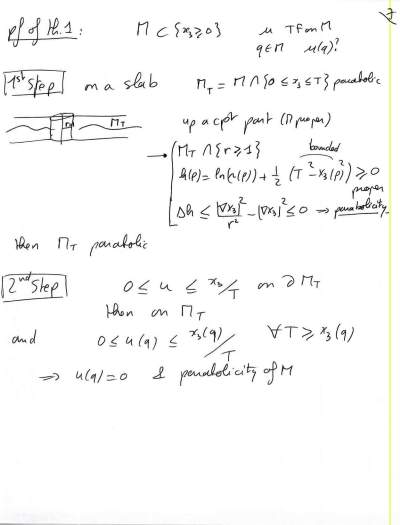 pf of th. 1 : M ⊂ {x₃ ≥ 0} u TF on M
q ∈ M u(q)?
1st Step on a slab M_T = M ∩ {0 ≤ x₃ ≤ T} parabolic
M_T up a cpt part (M proper)
M_T ∩ {r ≥ 1} bounded
h(p) = ln(r(p)) + 1/2 (T² - x₃(p)²) ≥ 0
proper
Δh ≤ |∇x₃|²/r² - |∇x₃|² ≤ 0 ⇒ parabolicity
then M_T parabolic
2nd Step 0 ≤ u ≤ x₃/T on ∂M_T
then on M_T
and 0 ≤ u(q) ≤ x₃(q)/T ∀ T ≥ x₃(q)
⇒ u(q) = 0 & parabolicity of M